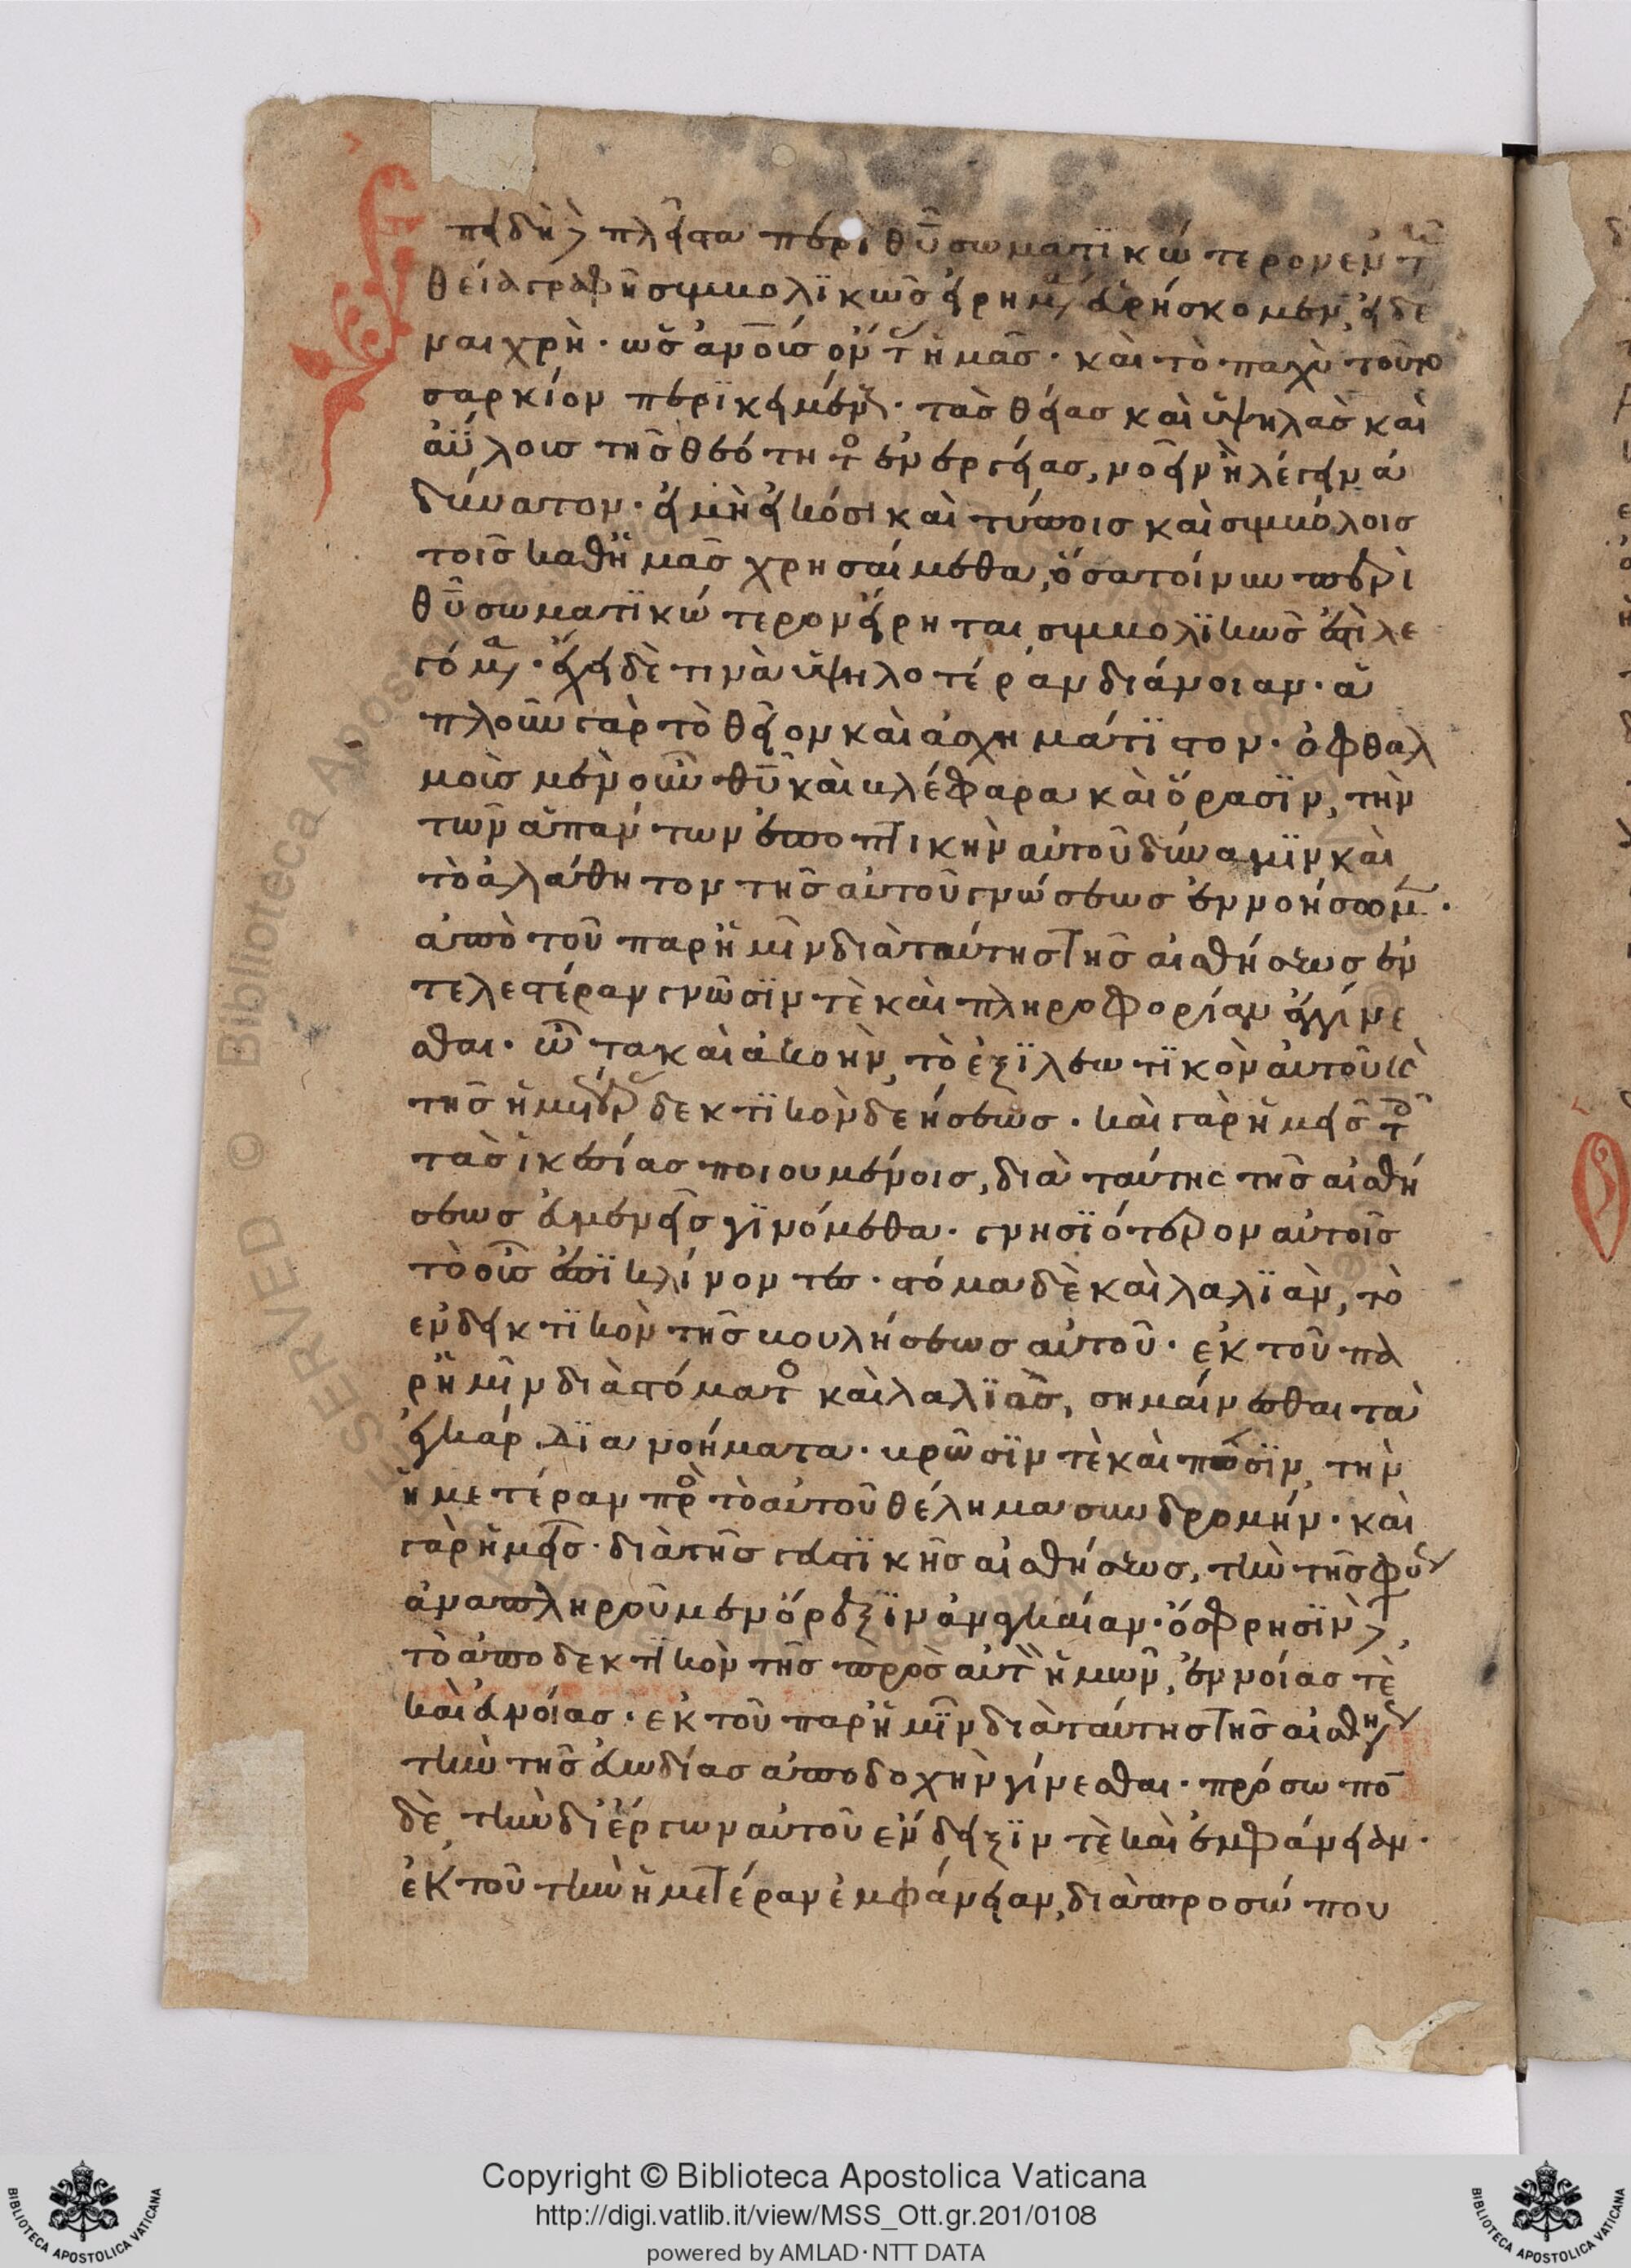 πειδὴ δὲ πλεῖστα περὶ θυ σωματϊκώτερον ἐν τῆ
θεία γραφῆ συμβολϊκῶς εἰρημένα εὑρήσκομεν, εἰδέ
ναι χρὴ· ὡς ἀνοις ὄντας ἡμᾶς· καὶ τὸ παχὺ τοῦτο
σαρκίον περϊκειμένους· τὰς θείας καὶ ὑψηλὰς καὶ
ἀΰλοις τῆς θεότητος ἐνεργείας, νοεῖν ἢ λέγειν ἀ
δύνατον· εἰ μὴ εἰκόσι καὶ τύποις καὶ συμβόλοις
τοῖς καθ ἡμᾶς χρησαίμεθα, ὅσα τοίνυν περὶ
θυ σωματϊκώτερον εἴρηται, συμβολϊκῶς ἐστὶ λε
γόμενα· ἔχει δὲ τινὰ ὑψηλοτέραν διάνοιαν· ἁ
πλοῦν γὰρ τὸ θεῖον καὶ ἀσχημάτϊστον· ὀφθαλ
μοὶς μὲν οὖν θυ καὶ βλέφαρα καὶ ὅρασϊν, τὴν
τῶν ἁπάντων ἐποπτικὴν αὐτοῦ δύναμϊν καὶ
τὸ ἀλάθητον τῆς αὐτοῦ γνώσεως ἐννοήσωμεν·
ἀπὸ τοῦ παρ ἡμῖν διὰ ταύτης τῆς αἰσθήσεως ἐν
τελεστέραν γνῶσϊν τὲ καὶ πληροφορίαν ἐγγίνε
σθαι· ὦτα καὶ ἀκοὴν, τὸ ἐξϊλεωτϊκὸν αὐτοῦ καὶ
τῆς ἡμετέρας δεκτϊκὸν δεήσεὼς· καὶ γὰρ ἡμεῖς τοῖς
τὰς ἱκεσίας ποιουμένοις, διὰ ταύτης τῆς αἰσθή
σεως εὐμενεῖς γϊνόμεθα· γνησϊότερον αὐτοῖς
τὸ οὖς ἐπϊκλίνοντες· στόμα δὲ καὶ λαλϊὰν, τὸ
ἐνδεικτϊκὸν τῆς βουλήσεως αὐτοῦ· ἐκ τοῦ πα
ρ ἡμῖν διὰ στόματος καὶ λαλϊᾶς, σημαίνεσθαι τὰ
ἐγκάρδϊα νοήματα· βρῶσϊν τὲ καὶ πόσϊν, τὴν
ἡμετέραν πρὸς τὸ αὐτοῦ θέλημα συνδρομήν· καὶ
γὰρ ἡμεῖς· διὰ τῆς γευστϊκῆς αἰσθήσεως, τὴν τῆς φύσεως
ἀναπληροῦμεν ὄρεξϊν ἀναγκαίαν· ὄσφρησϊν δὲ,
τὸ ἀποδεκτϊκὸν τῆς πρὸς αὐτὸν ἡμῶν, ἐννοίας τὲ
καὶ εὐνοίας· ἐκ τοῦ παρ ἡμῖν διὰ ταύτης τῆς αἰσθήσεως
τὴν τῆς εὐωδίας ἀποδοχὴν γίνεσθαι· πρόσωπον
δὲ, τὴν δι ἔργων αὐτοῦ ἔνδειξϊν τὲ καὶ ἐμφάνειαν·
ἐκ τοῦ τὴν ἡμετέραν ἐμφάνειαν, διὰ προσώπου
Copyright © Biblioteca Apostolica Vaticana
http://digi.vatlib.it/view/MSS_Ott.gr.201/0108
powered by AMLAD·NTT DATA
BIBLIOTECA APOSTOLICA VATICANA
BIBLIOTECA APOSTOLICA VATICANA